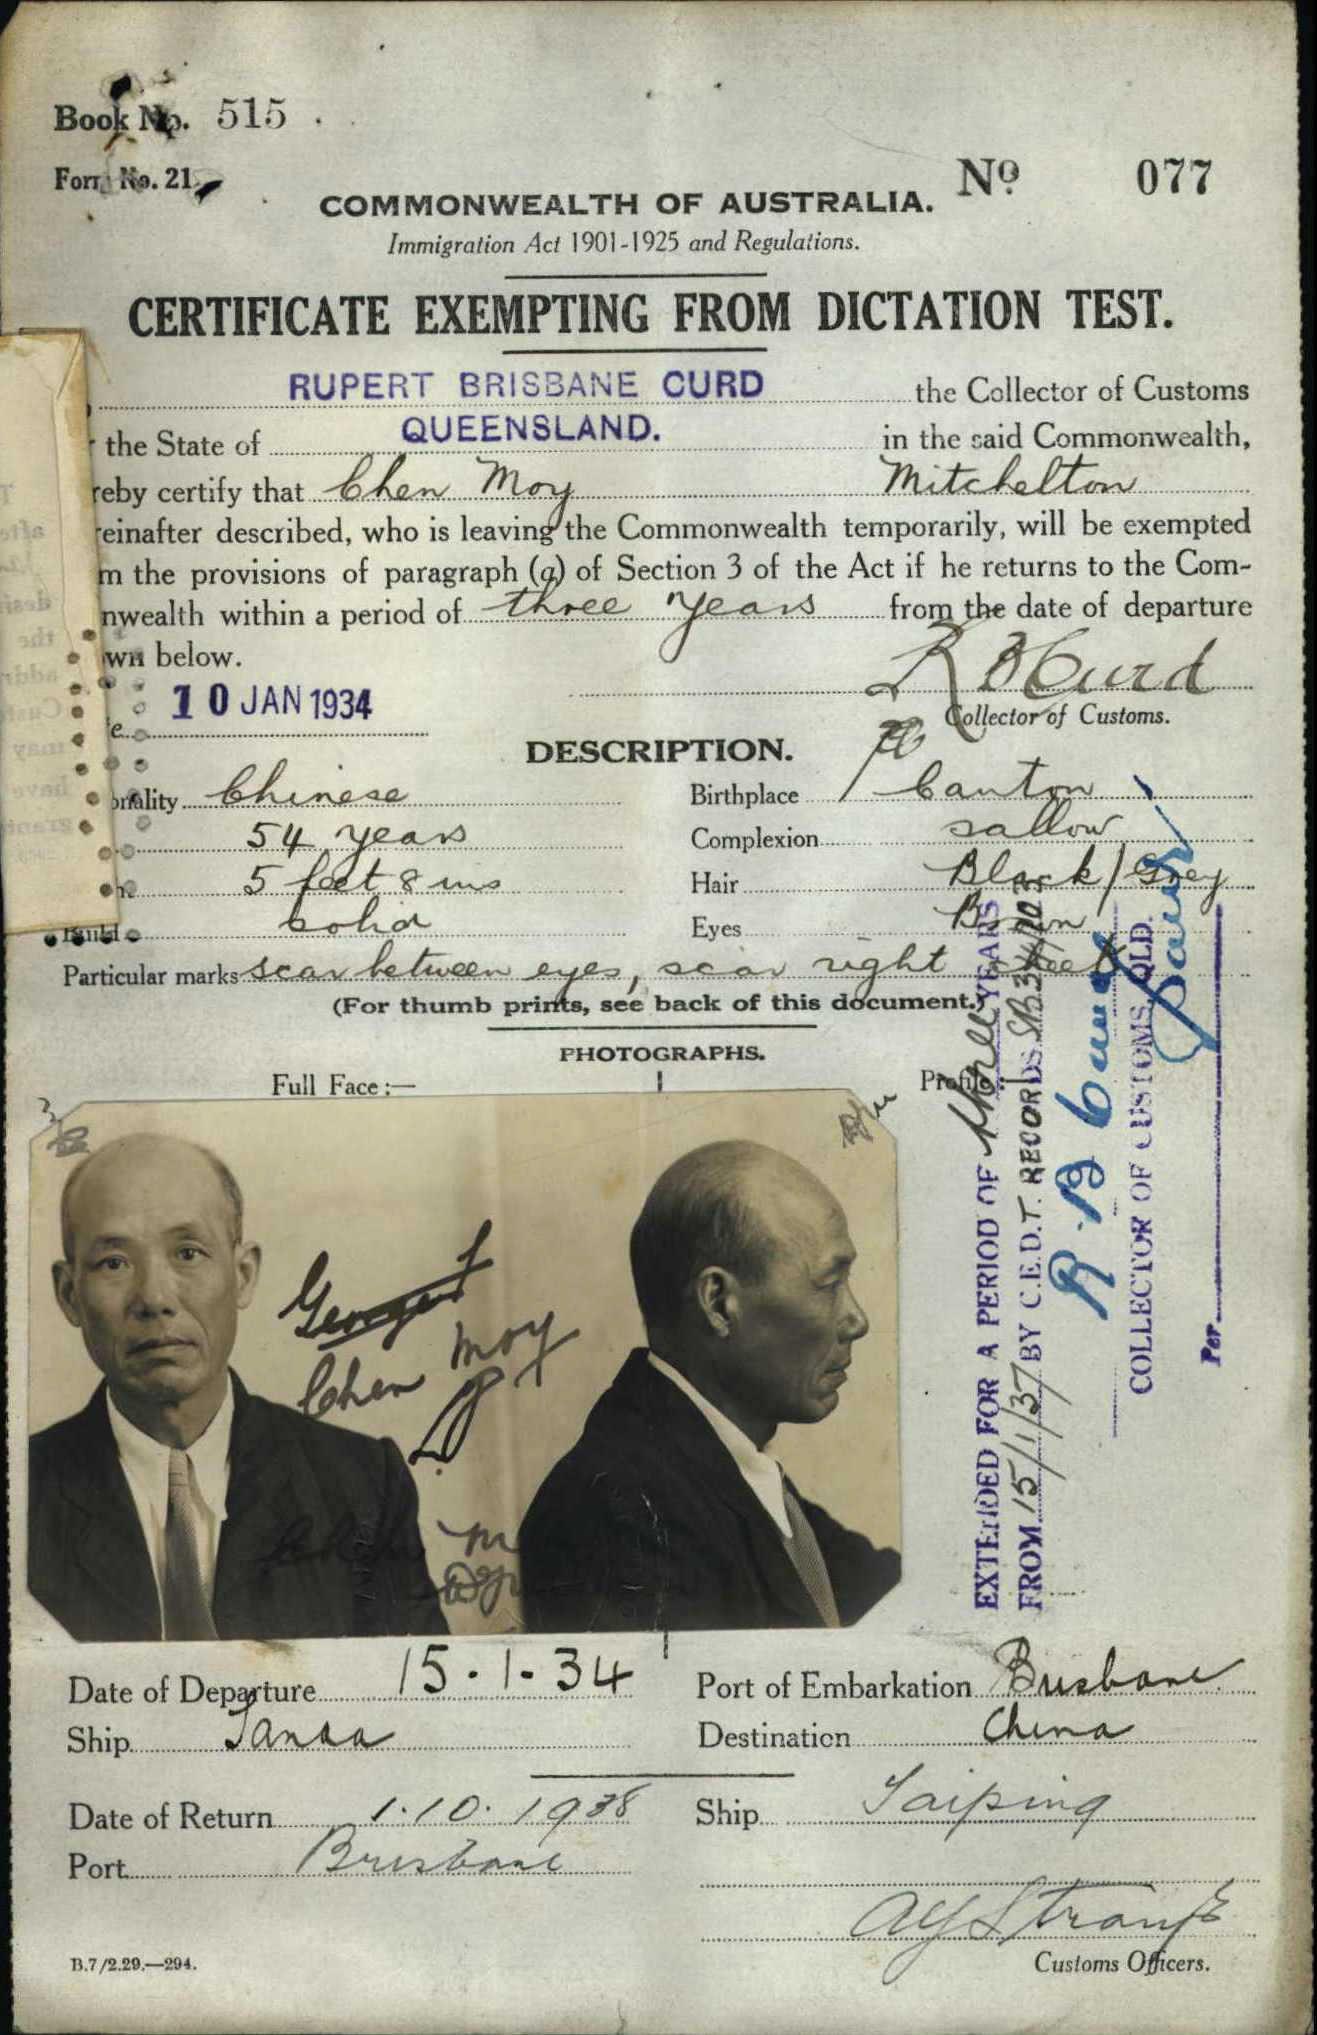 Book No. 515
Form No. 21.
No. 077
COMMONWEALTH OF AUSTRALIA.
Immigration Act 1901-1925 and Regulations.
CERTIFICATE EXEMPTING FROM DICTATION TEST.
RUPERT BRISBANE CURD the Collector of Customs
the State of QUEENSLAND. in the said Commonwealth,
reby certify that Chen Moy Mitchelton
reinafter described, who is leaving the Commonwealth temporarily, will be exempted
m the provisions of paragraph (a) of Section 3 of the Act if he returns to the Com-
nwealth within a period of three years from the date of departure
wn below.
R B Curd
10 JAN 1934
Collector of Customs.
DESCRIPTION.
onality Chinese Birthplace Canton
54 years Complexion sallow
5 feet 8 ins Hair Black/Grey
Build solid Eyes Brown
Particular marks scar between eyes, scar right cheek
(For thumb prints, see back of this document.)
PHOTOGRAPHS.
Full Face:— Profile
George
Chen Moy
EXTENDED FOR A PERIOD OF three YEARS
FROM 15/1/37 BY C.E.D.T. RECORDS
R. B. Curd
COLLECTOR OF CUSTOMS, QLD.
Per
Date of Departure 15.1.34 Port of Embarkation Brisbane
Ship Tanda Destination China
Date of Return 1.10.1938 Ship Taiping
Port Brisbane
Customs Officers.
B.7/2.29.—294.